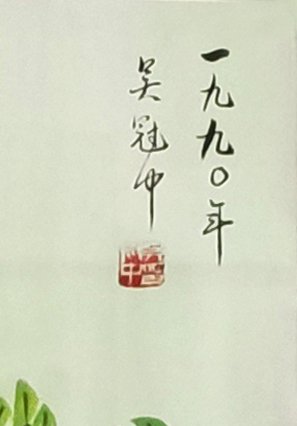 一九九〇年
吴冠中